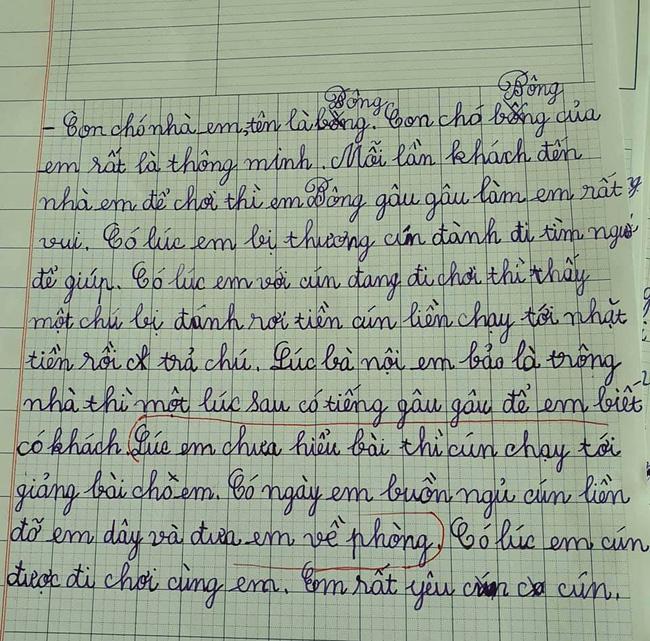 Bông Bông
- Con chó nhà em, tên là bông. Con chó bống của
em rất là thông minh. Mỗi lần khách đến
nhà em để chơi thì em Bông gâu gâu làm em rất
vui. Có lúc em bị thương cún đành đi tìm ngườ
để giúp. Có lúc em với cún đang đi chơi thì thấy
một chú bị đánh rơi tiền cún liền chạy tới nhặt
tiền rồi trả chú. Lúc bà nội em bảo là trông
nhà thì một lúc sau có tiếng gâu gâu để em biết
có khách. Lúc em chưa hiểu bài thì cún chạy tới
giảng bài cho em. Có ngày em buồn ngủ cún liền
đỡ em dây và đưa em về phòng. Có lúc em cún
được đi chơi cùng em. Em rất yêu cún.